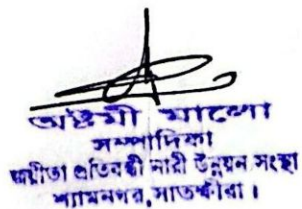 অষ্টমী মালো
সম্পাদিকা
জয়ীতা প্রতিবন্ধী নারী উন্নয়ন সংস্থা
শ্যামনগর, সাতক্ষীরা।